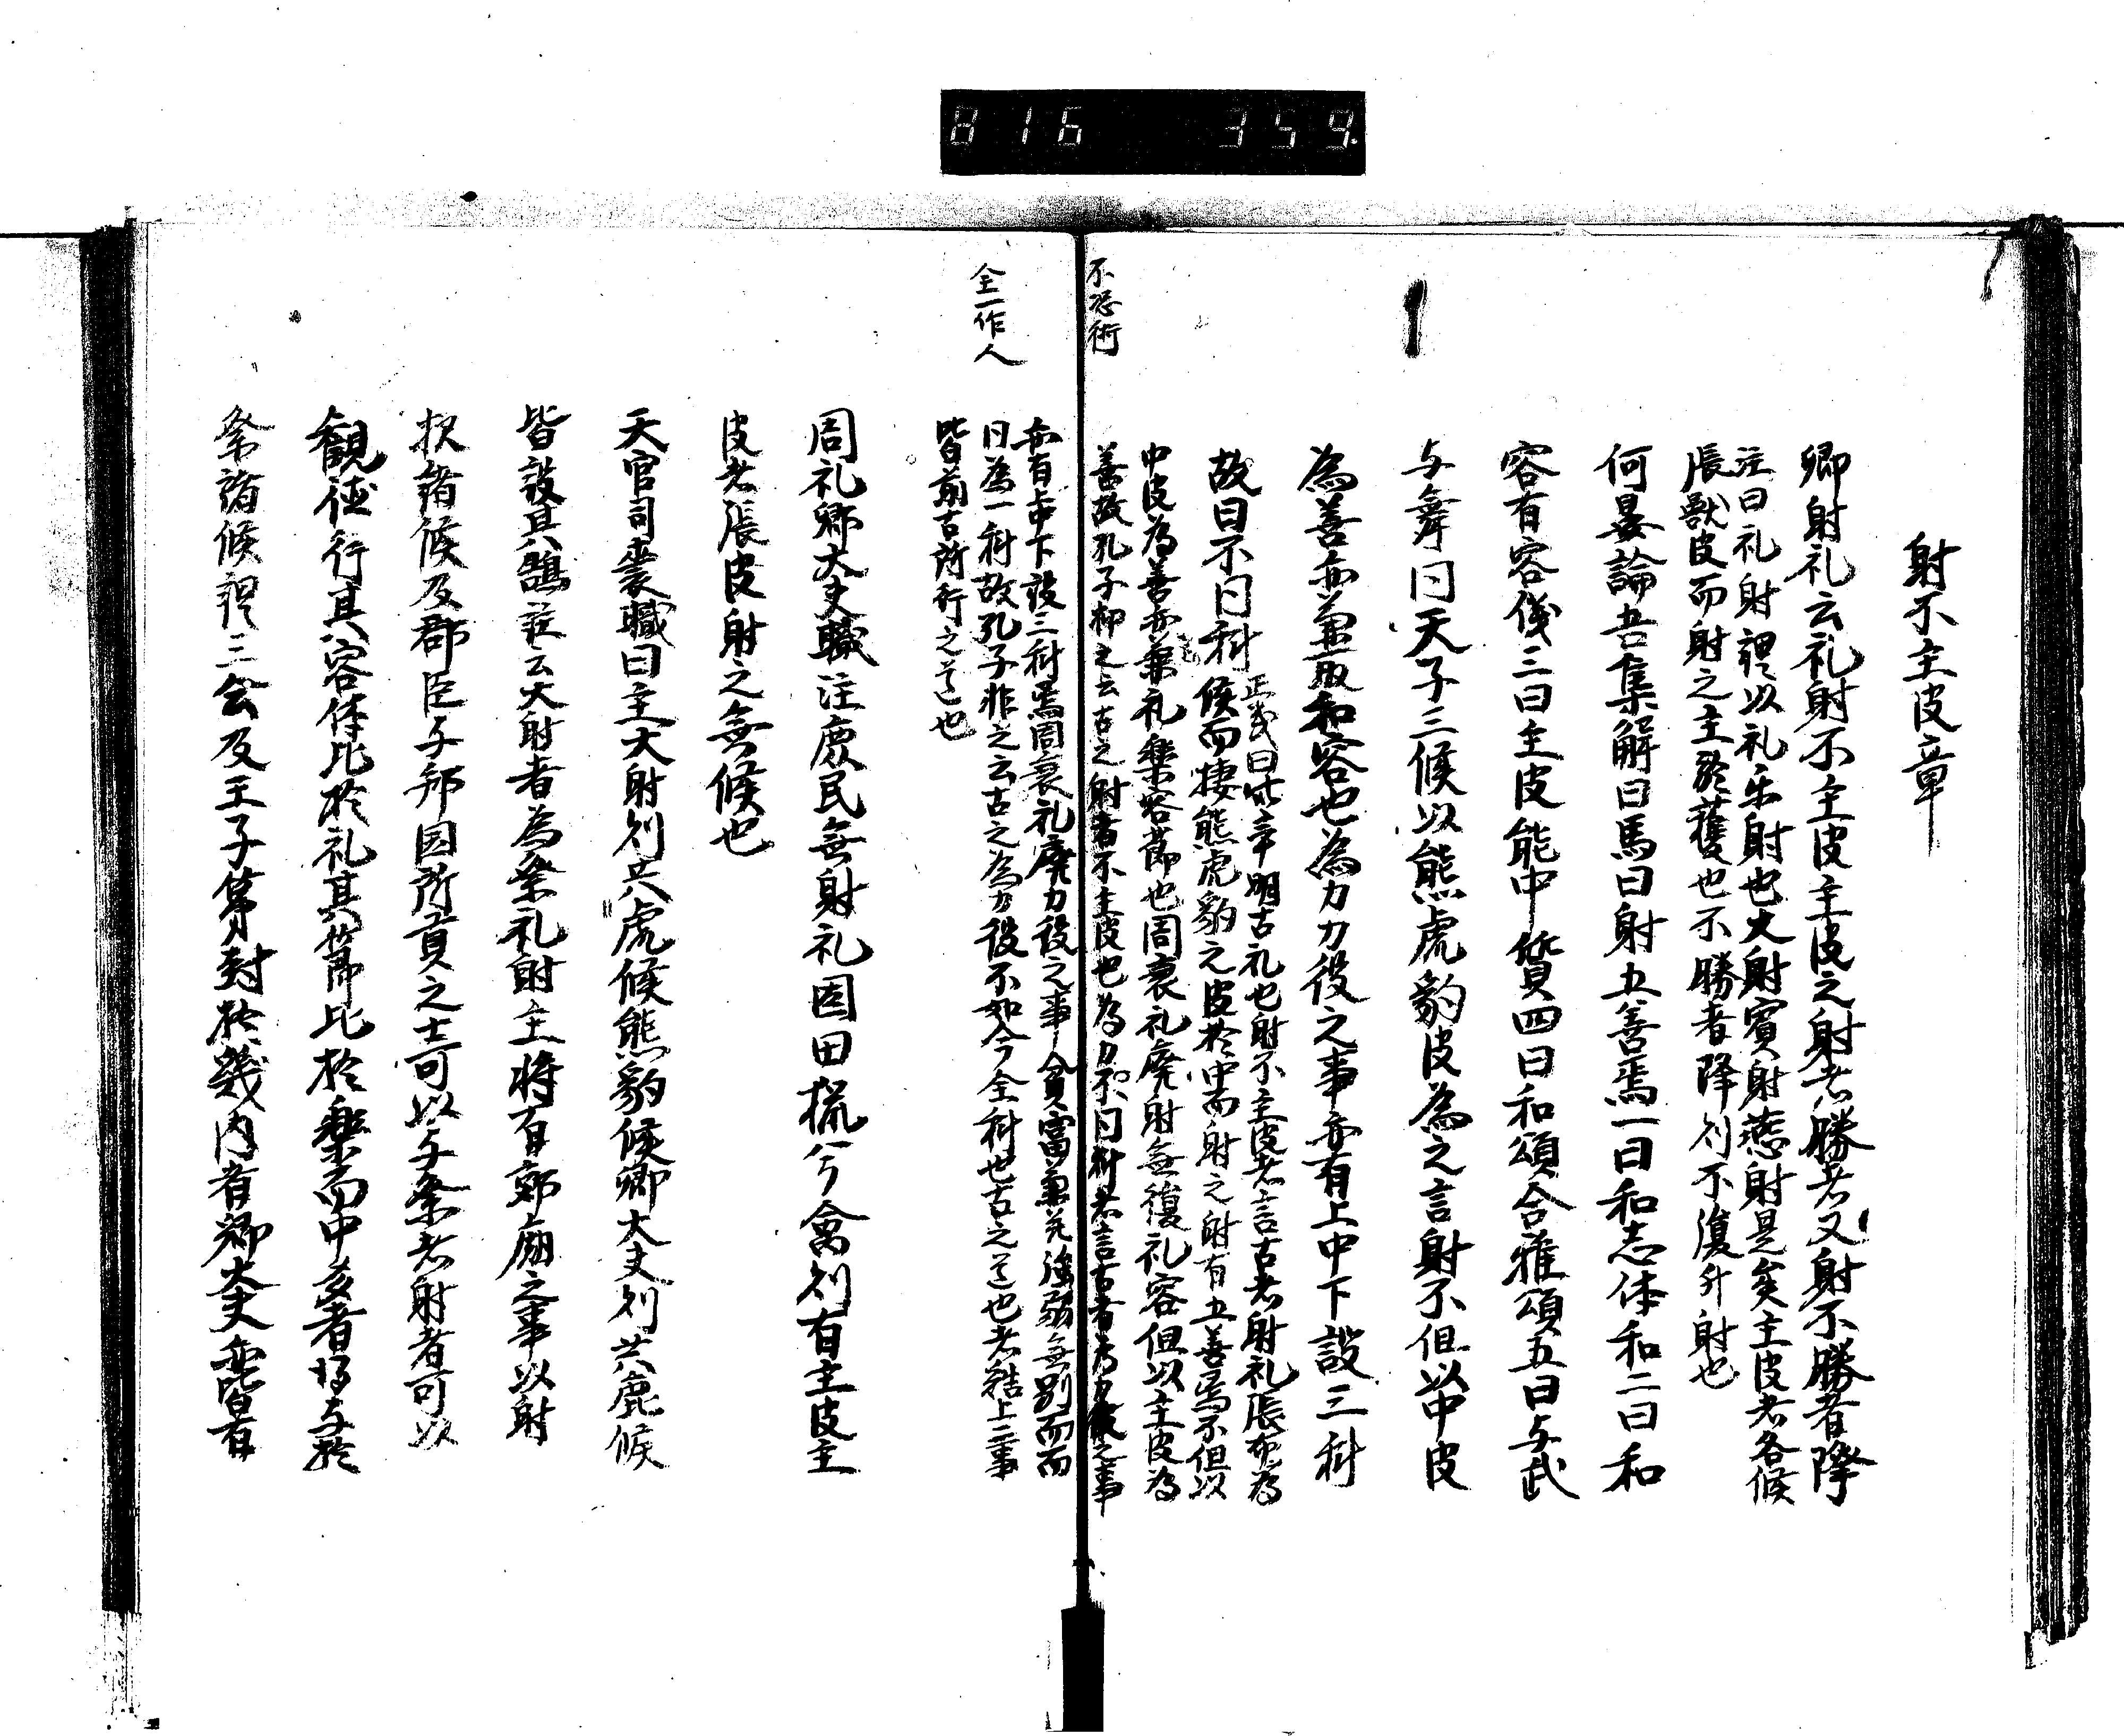 816 359
射不主皮章
卿射礼云礼射不主皮主皮之射者勝者又射不勝者降
注曰礼射謂以礼乐射也大射賓射燕射是矣主皮者各候
張獣皮而射之主於獲也不勝者降則不復升射也
何晏論吾集解曰馬曰射五善焉一曰和志体和二曰和
容有容儀三曰主皮能中質四曰和頌合雅頌五曰与武
与舞同天子三候以熊虎豹皮為之言射不但以中皮
為善亦兼取和容也為力力役之事亦有上中下設三科
故曰不同科 正義曰此章明古礼也射不主皮者言古者射礼張布為
候而棲熊虎豹之皮於中而射之射有五善焉不但以
中皮為善亦兼礼樂容節也周衰礼廃射無復礼容但以主皮為
善故孔子抑之云古之射者不主皮也為力不同科者言古者為力役之事
不忍術
亦有上中下設三科焉周衰礼廃力役之事貧富兼并強弱無別而而
同為一科故孔子非之云古之為力役不如今全科也古之道也者結上二事
皆前古所行之道也
全一作人
周礼郷大夫職注庶民無射礼因田獵分禽則有主皮主
皮者張皮射之無候也
天官司裘職曰王大射則共虎候熊豹候卿大夫則共鹿候
皆設其鵠注云大射者為祭礼射王将有郊廟之事以射
択諸候及群臣与邦国所貢之士可以与祭者射者可以
観徳行其容体比於礼其節比於樂而中多者得与於
祭諸候謂三公及王子弟封於畿内者卿大夫亦皆有